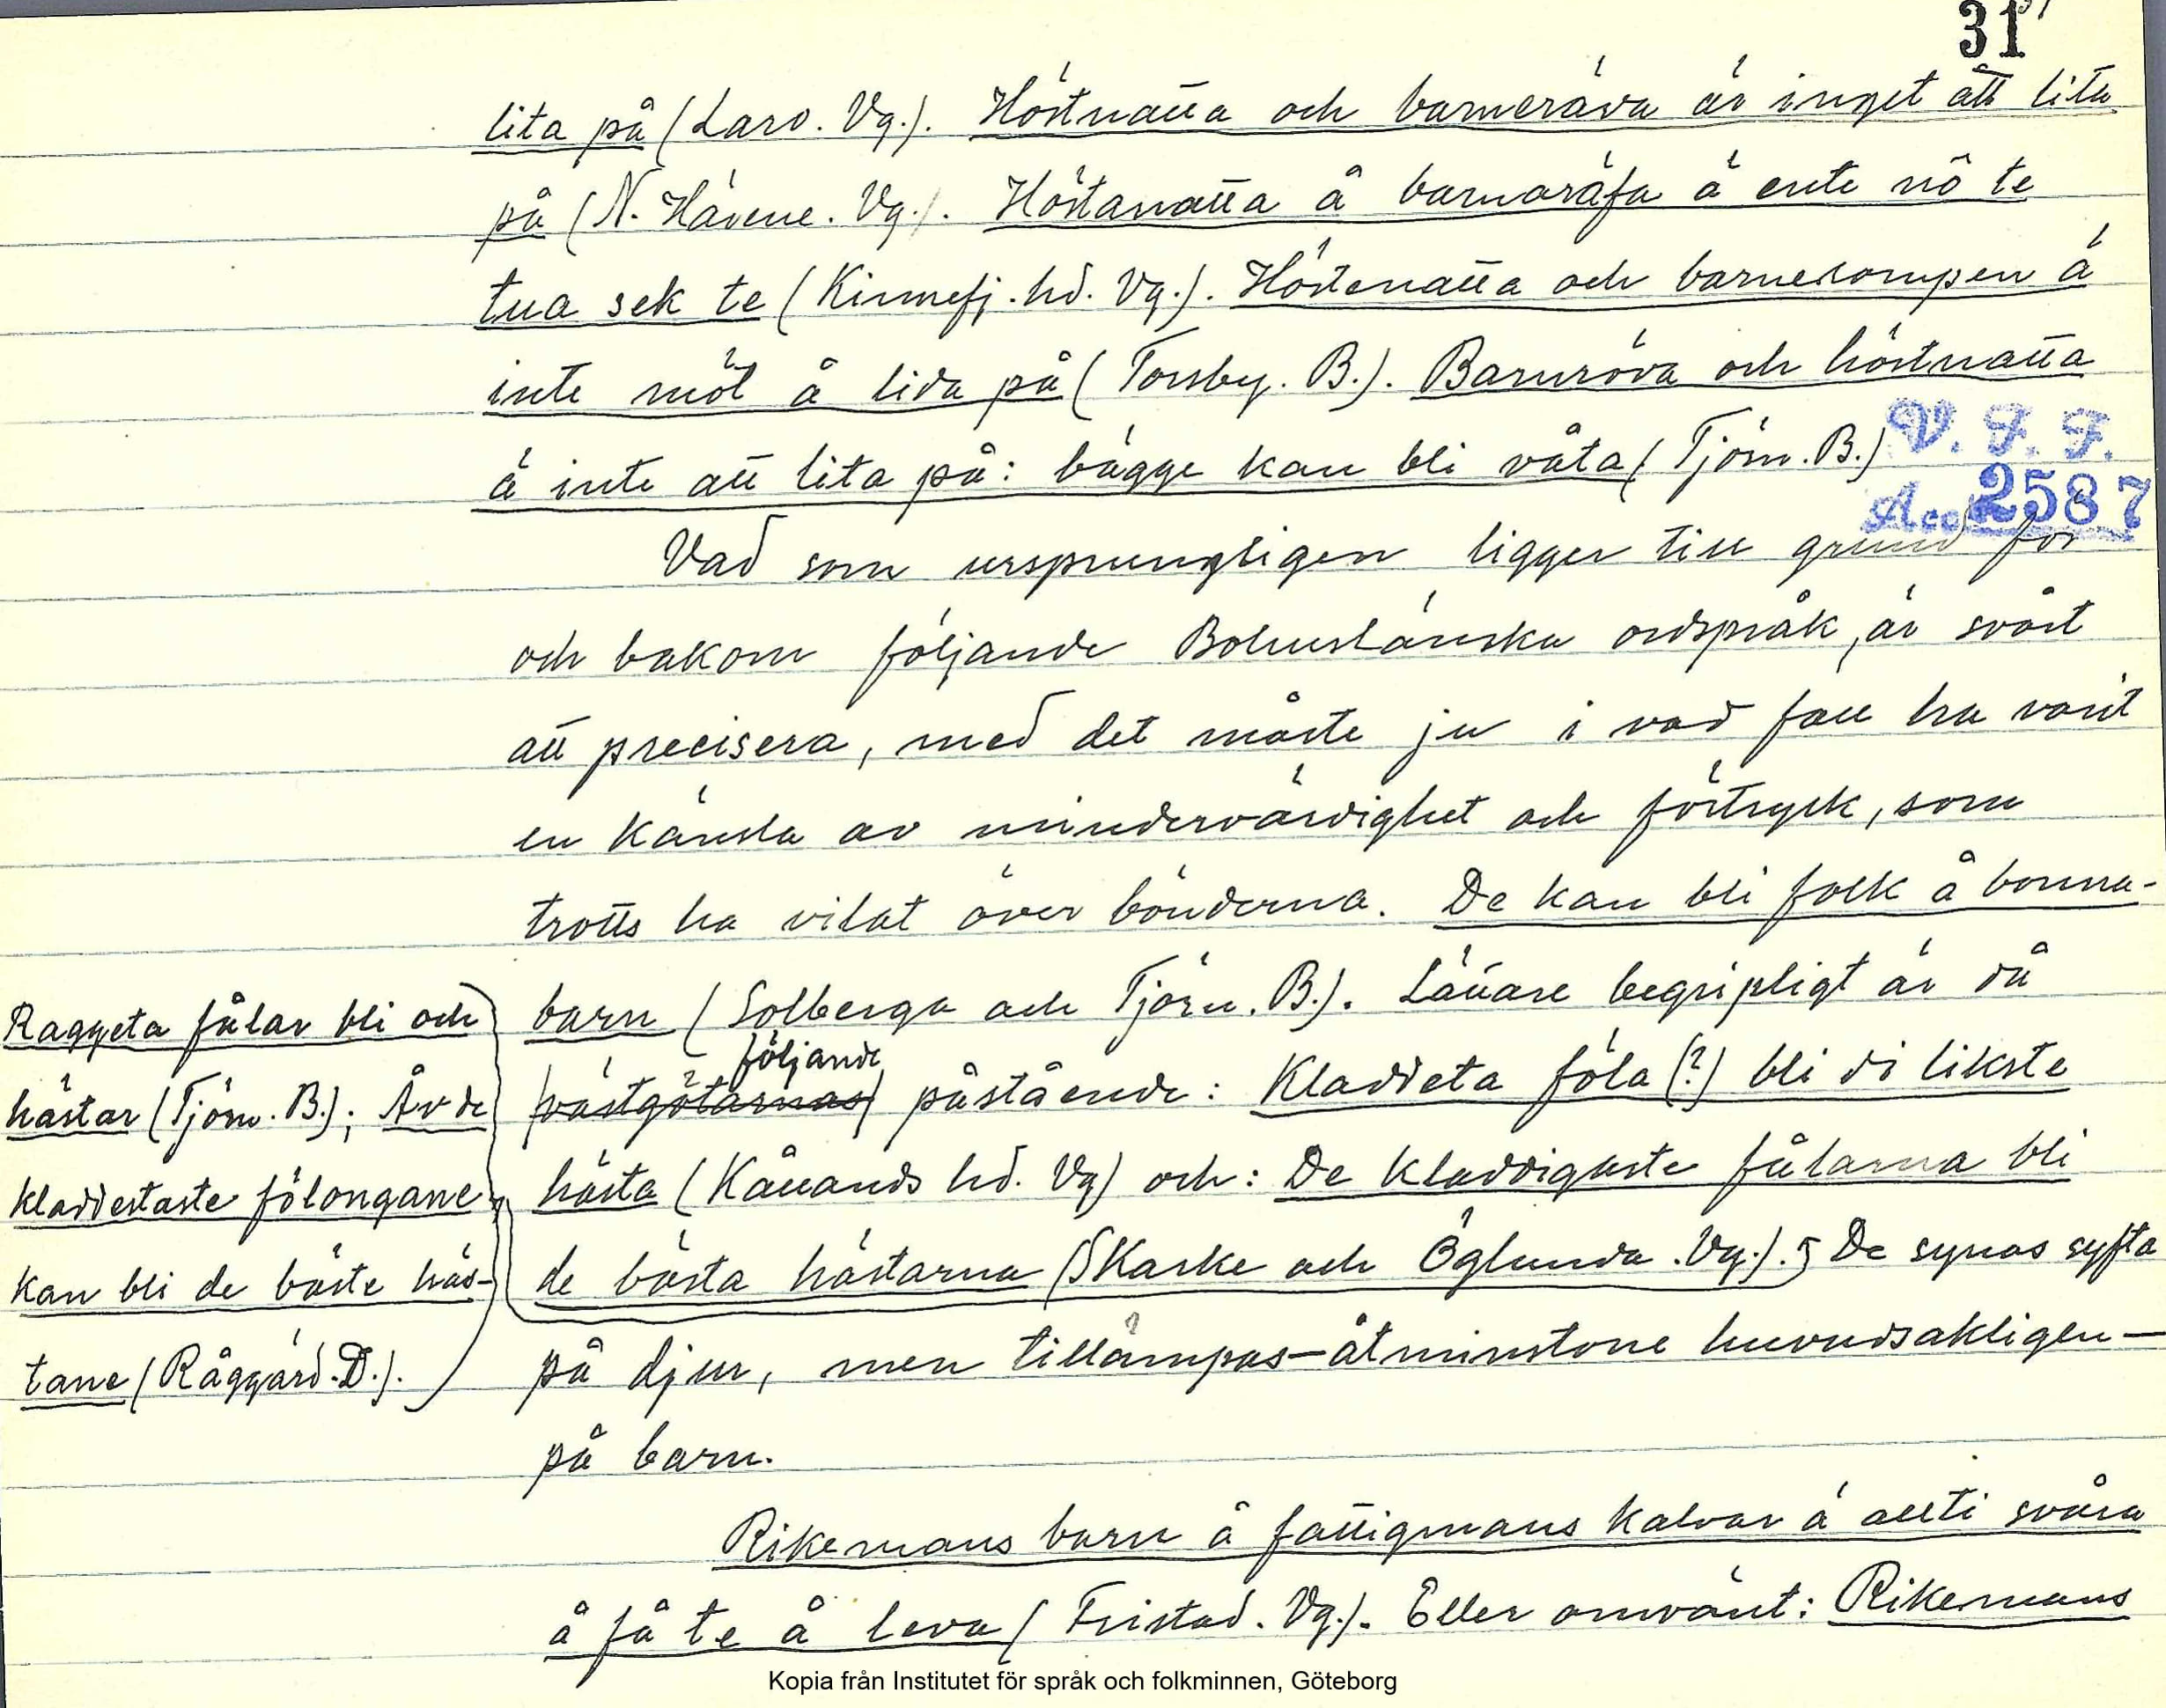 31
lita på (Larv. Vg.). Höstnätta och barneräva är inget att lita
på (N. Hävene. Vg.). Höstanatta å barnaräfa ä ente nô te
tua sek te (Kinnefj. hd. Vg.). Höstenatta och barnerompen ä
inte möt å lida på (Torsby. B.). Barnröva och höstnatta
ä inte att lita på: bägge kan bli våta (Tjörn. B.)
V. F. F.
Acc. 2587
Vad som ursprungligen ligger till grund för
och bakom följande Bohuslänska ordspråk, är svårt
att precisera, med det måste ju i vad fall ha varit
en känsla av mindervärdighet och förtryck, som
trotts ha vilat över bönderna. De kan bli folk å bonna-
barn (Solberga och Tjörn. B.). Lättare begripligt är då
följande
västgötarnas påstående: Kladdeta föla (?) bli di likste
hästa (Kållands hd. Vg) och: De kladdigaste fålarna bli
de bästa hästarna (Skarke och Öglunda. Vg.). De synas syfta
på djur, men tillämpas – åtminstone huvudsakligen –
på barn.
Raggeta fålar bli och
hästar (Tjörn. B.); Av de
kladdestaste fölongane
kan bli de bäste häs-
tane (Råggärd. D.).
Rikemans barn å fattigmans kalvar ä allti svåra
å få te å leva (Fristad. Vg.). Eller omvänt: Rikemans
Kopia från Institutet för språk och folkminnen, Göteborg